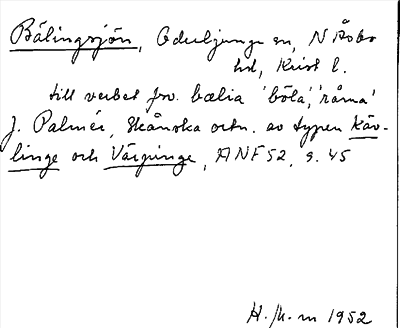 Bälingsjön, Oderljunga sn, N Åsbo
hd, Krist l.
till verbet fsv. bælia 'böla', 'råma'
J. Palmér, Skånska ortn. av typen Käv-
linge och Värpinge, ANF 52, s. 45
H. 1952